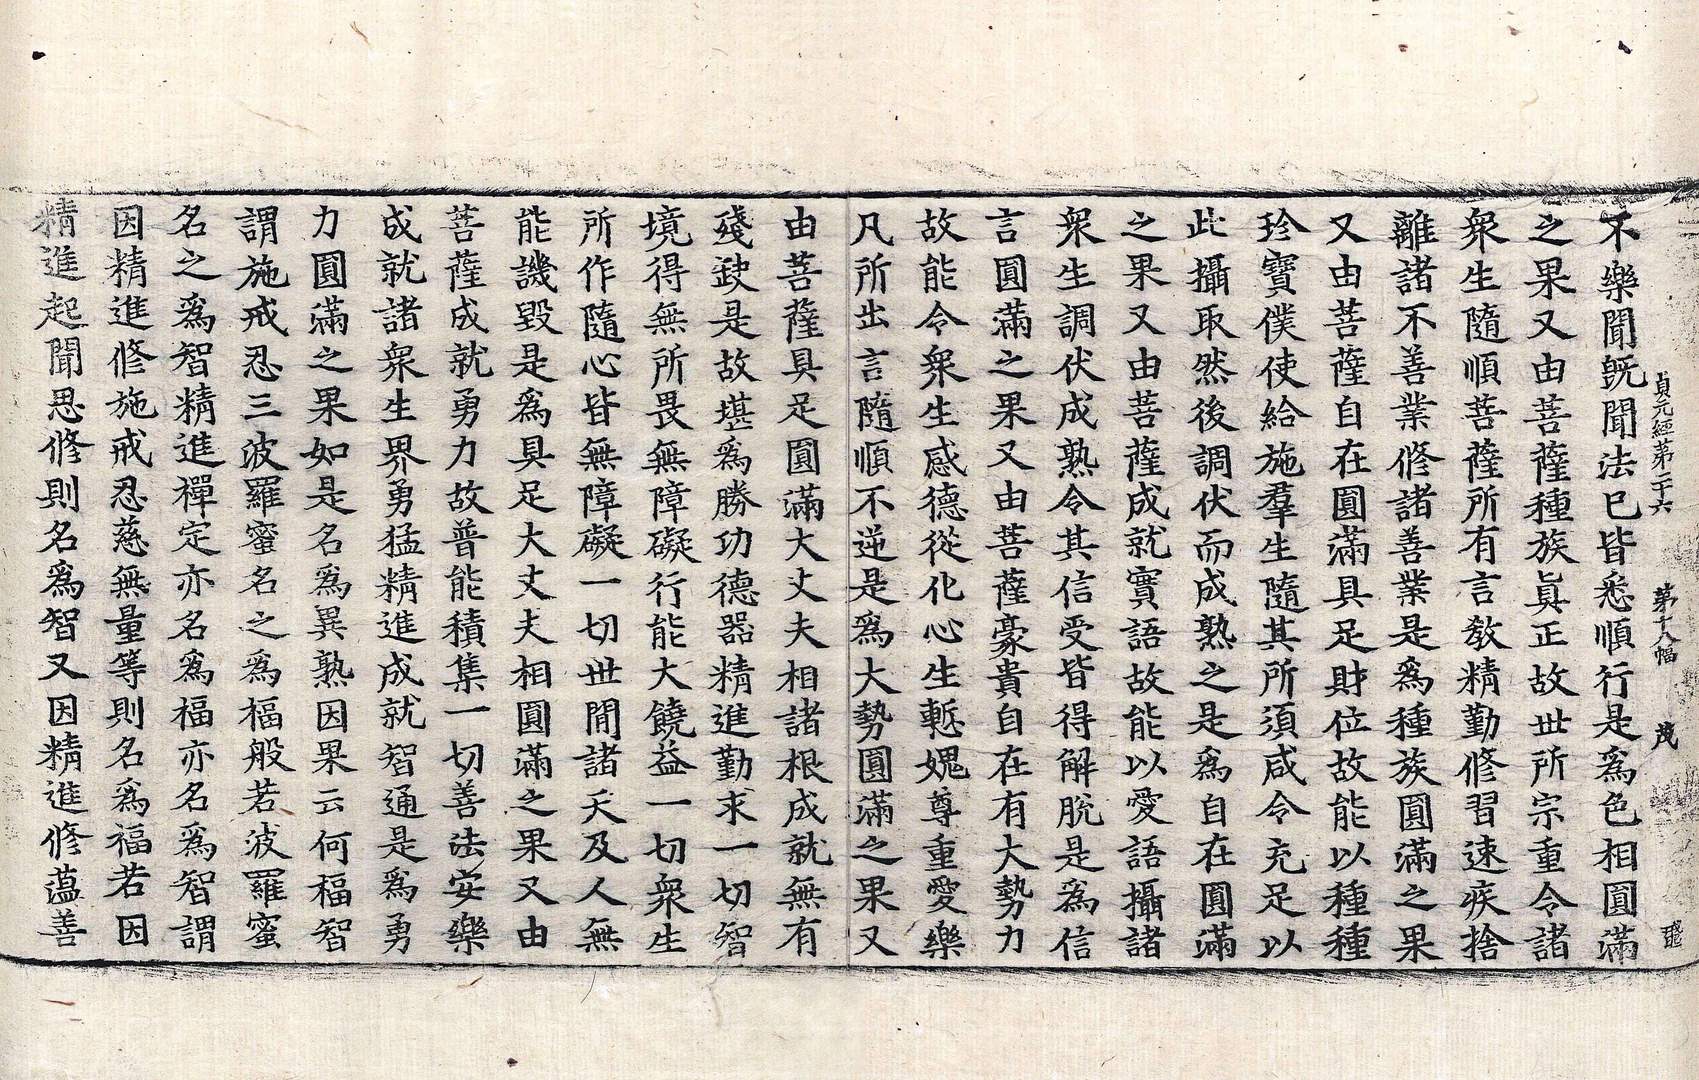 貞元經第二十六 第十八幅 茂
不樂聞旣聞法已皆悉順行是爲色相圓滿
之果又由菩薩種族眞正故世所宗重令諸
衆生隨順菩薩所有言敎精勤修習速疾捨
離諸不善業修諸善業是爲種族圓滿之果
又由菩薩自在圓滿具足財位故能以種種
珍寶僕使給施羣生隨其所須咸令充足以
此攝取然後調伏而成熟之是爲自在圓滿
之果又由菩薩成就實語故能以愛語攝諸
衆生調伏成熟令其信受皆得解脫是爲信
言圓滿之果又由菩薩豪貴自在有大勢力
故能令衆生感德從化心生慙媿尊重愛樂
凡所出言隨順不逆是爲大勢圓滿之果又
由菩薩具足圓滿大丈夫相諸根成就無有
殘缺是故堪爲勝功德器精進勤求一切智
境得無所畏無障礙行能大饒益一切衆生
所作隨心皆無障礙一切世閒諸天及人無
能譏毀是爲具足大丈夫相圓滿之果又由
菩薩成就勇力故普能積集一切善法安樂
成就諸衆生界勇猛精進成就智通是爲勇
力圓滿之果如是名爲異熟因果云何福智
謂施戒忍三波羅蜜名之爲福般若波羅蜜
名之爲智精進禪定亦名爲福亦名爲智謂
因精進修施戒忍慈無量等則名爲福若因
精進起聞思修則名爲智又因精進修蕴善